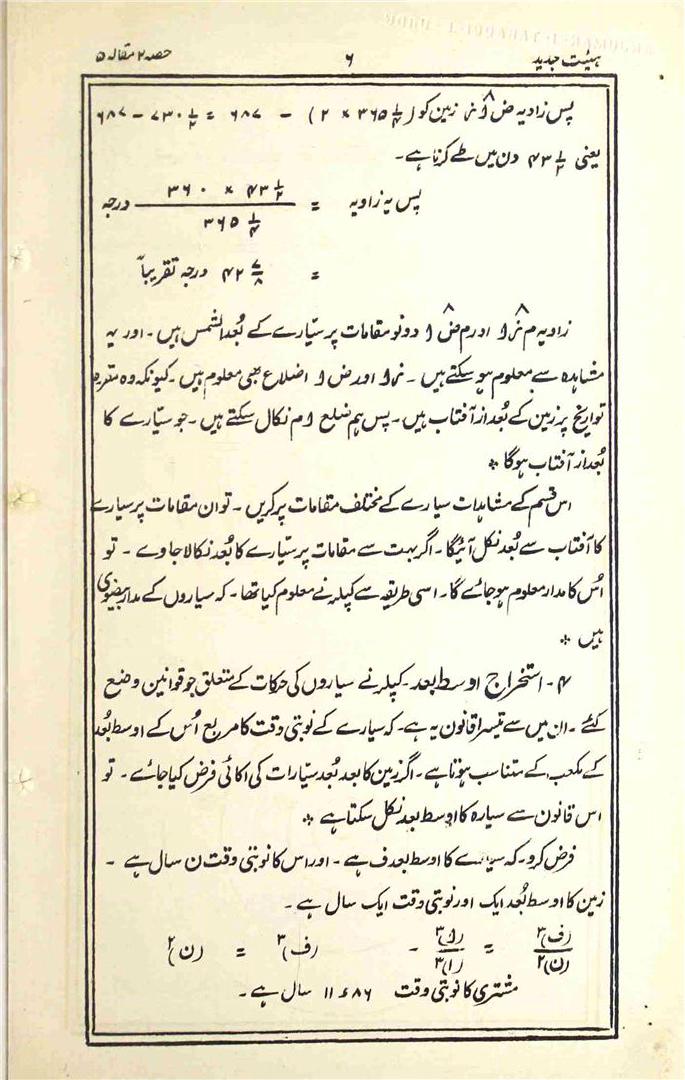 ہیئت جدید ۶ حصہ ۲ مقالہ ۵
پس زاویہ ض ا نہ زمین کو (۳۶۵ ۱/۴ × ۲) - ۶۸۷ = ۷۳۰ ۱/۲ - ۶۸۷
یعنی ۴۳ ۱/۲ دن میں طے کرتا ہے۔
پس یہ زاویہ = (۳۶۰ × ۴۳ ۱/۲) / (۳۶۵ ۱/۴) درجہ
= ۴۲ ۷/۸ درجہ تقریباً
زاویہ م نہ ا اور م ض ا دونو مقامات پر سیّارے کے بُعد الشمس ہیں۔ اور یہ
مشاہدہ سے معلوم ہو سکتے ہیں۔ نہ ا اور ض ا اضلاع بھی معلوم ہیں۔ کیونکہ وہ مقررہ
تواریخ پر زمین کے بُعد از آفتاب ہیں۔ پس ہم ضلع ا م نکال سکتے ہیں۔ جو سیّارے کا
بُعد از آفتاب ہوگا *
اس قسم کے مشاہدات سیارے کے مختلف مقامات پر کریں۔ تو ان مقامات پر سیارے
کا آفتاب سے بُعد نکل آئیگا۔ اگر بہت سے مقامات پر سیّارے کا بُعد نکالا جاوے۔ تو
اُس کا مدار معلوم ہو جائے گا۔ اسی طریقہ سے کپلر نے معلوم کیا تھا۔ کہ سیاروں کے مدار بیضوی
ہیں *
۴۔ استخراج اوسط بعد۔ کپلر نے سیاروں کی حرکات کے متعلق جو قوانین وضع
کئے۔ ان میں سے تیسرا قانون یہ ہے۔ کہ سیارے کے نوبتی وقت کا مربع اُس کے اوسط بُعد
کے مکعب کے متناسب ہوتا ہے۔ اگر زمین کا بعد بُعد سیّارات کی اکائی فرض کیا جائے۔ تو
اس قانون سے سیارہ کا اوسط بعد نکل سکتا ہے *
فرض کرو۔ کہ سیارے کا اوسط بعد ف ہے۔ اور اس کا نوبتی وقت ن سال ہے۔
زمین کا اوسط بُعد ایک اور نوبتی وقت ایک سال ہے۔
(ف)۳ / (ن)۲ = (۱)۳ / (۱)۳ ۔ (ف)۳ = (ن)۲
مشتری کا نوبتی وقت ۱۱ء۸۶ سال ہے۔